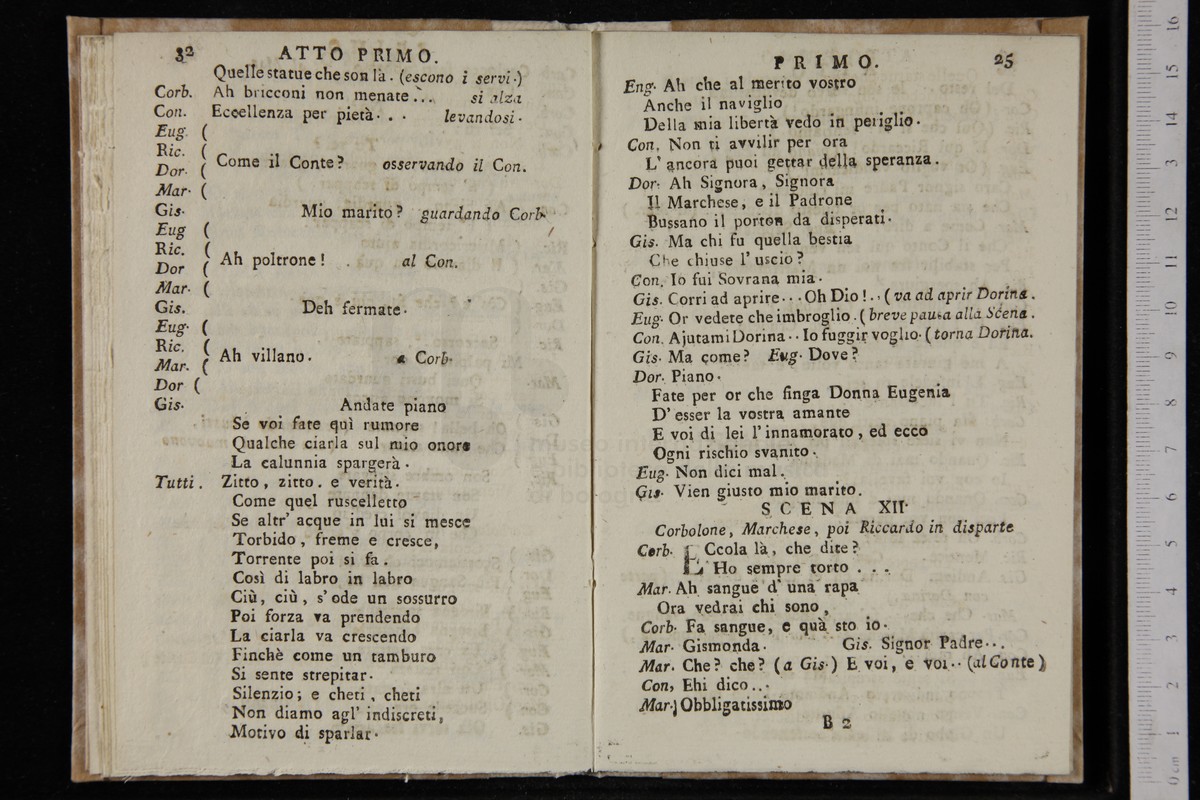 32 ATTO PRIMO.
Quelle statue che son là. (escono i servi.)
Corb. Ah bricconi non menate... si alza
Con. Eccellenza per pietà... levandosi.
Eug. (
Ric. (
Dor. ( Come il Conte? osservando il Con.
Mar. (
Gis. Mio marito? guardando Corb.
Eug (
Ric. (
Dor ( Ah poltrone! al Con.
Mar. (
Gis. Deh fermate.
Eug. (
Ric. (
Mar. ( Ah villano. a Corb.
Dor (
Gis. Andate piano
Se voi fate quì rumore
Qualche ciarla sul mio onore
La calunnia spargerà.
Tutti. Zitto, zitto. e verità.
Come quel ruscelletto
Se altr' acque in lui si mesce
Torbido, freme e cresce,
Torrente poi si fa.
Così di labro in labro
Ciù, ciù, s' ode un sossurro
Poi forza va prendendo
La ciarla va crescendo
Finchè come un tamburo
Si sente strepitar.
Silenzio; e cheti, cheti
Non diamo agl' indiscreti,
Motivo di sparlar.
PRIMO. 25
Eng. Ah che al merito vostro
Anche il naviglio
Della mia libertà vedo in periglio.
Con. Non ti avvilir per ora
L' ancora puoi gettar della speranza.
Dor. Ah Signora, Signora
Il Marchese, e il Padrone
Bussano il porton da disperati.
Gis. Ma chi fu quella bestia
Che chiuse l' uscio?
Con. Io fui Sovrana mia.
Gis. Corri ad aprire... Oh Dio!.. (va ad aprir Dorina.
Eug. Or vedete che imbroglio. (breve pausa alla Scena.
Con. Ajutami Dorina.. Io fuggir voglio. (torna Dorina.
Gis. Ma come? Eug. Dove?
Dor. Piano.
Fate per or che finga Donna Eugenia
D' esser la vostra amante
E voi di lei l' innamorato, ed ecco
Ogni rischio svanito.
Eug. Non dici mal.
Gis. Vien giusto mio marito.
SCENA XII.
Corbolone, Marchese, poi Riccardo in disparte
Corb. ECcola là, che dite?
Ho sempre torto...
Mar. Ah sangue d' una rapa
Ora vedrai chi sono,
Corb. Fa sangue, e quà sto io.
Mar. Gismonda. Gis. Signor Padre...
Mar. Che? che? (a Gis.) E voi, e voi.. (al Conte)
Con, Ehi dico...
Mar. Obbligatissimo
B 2